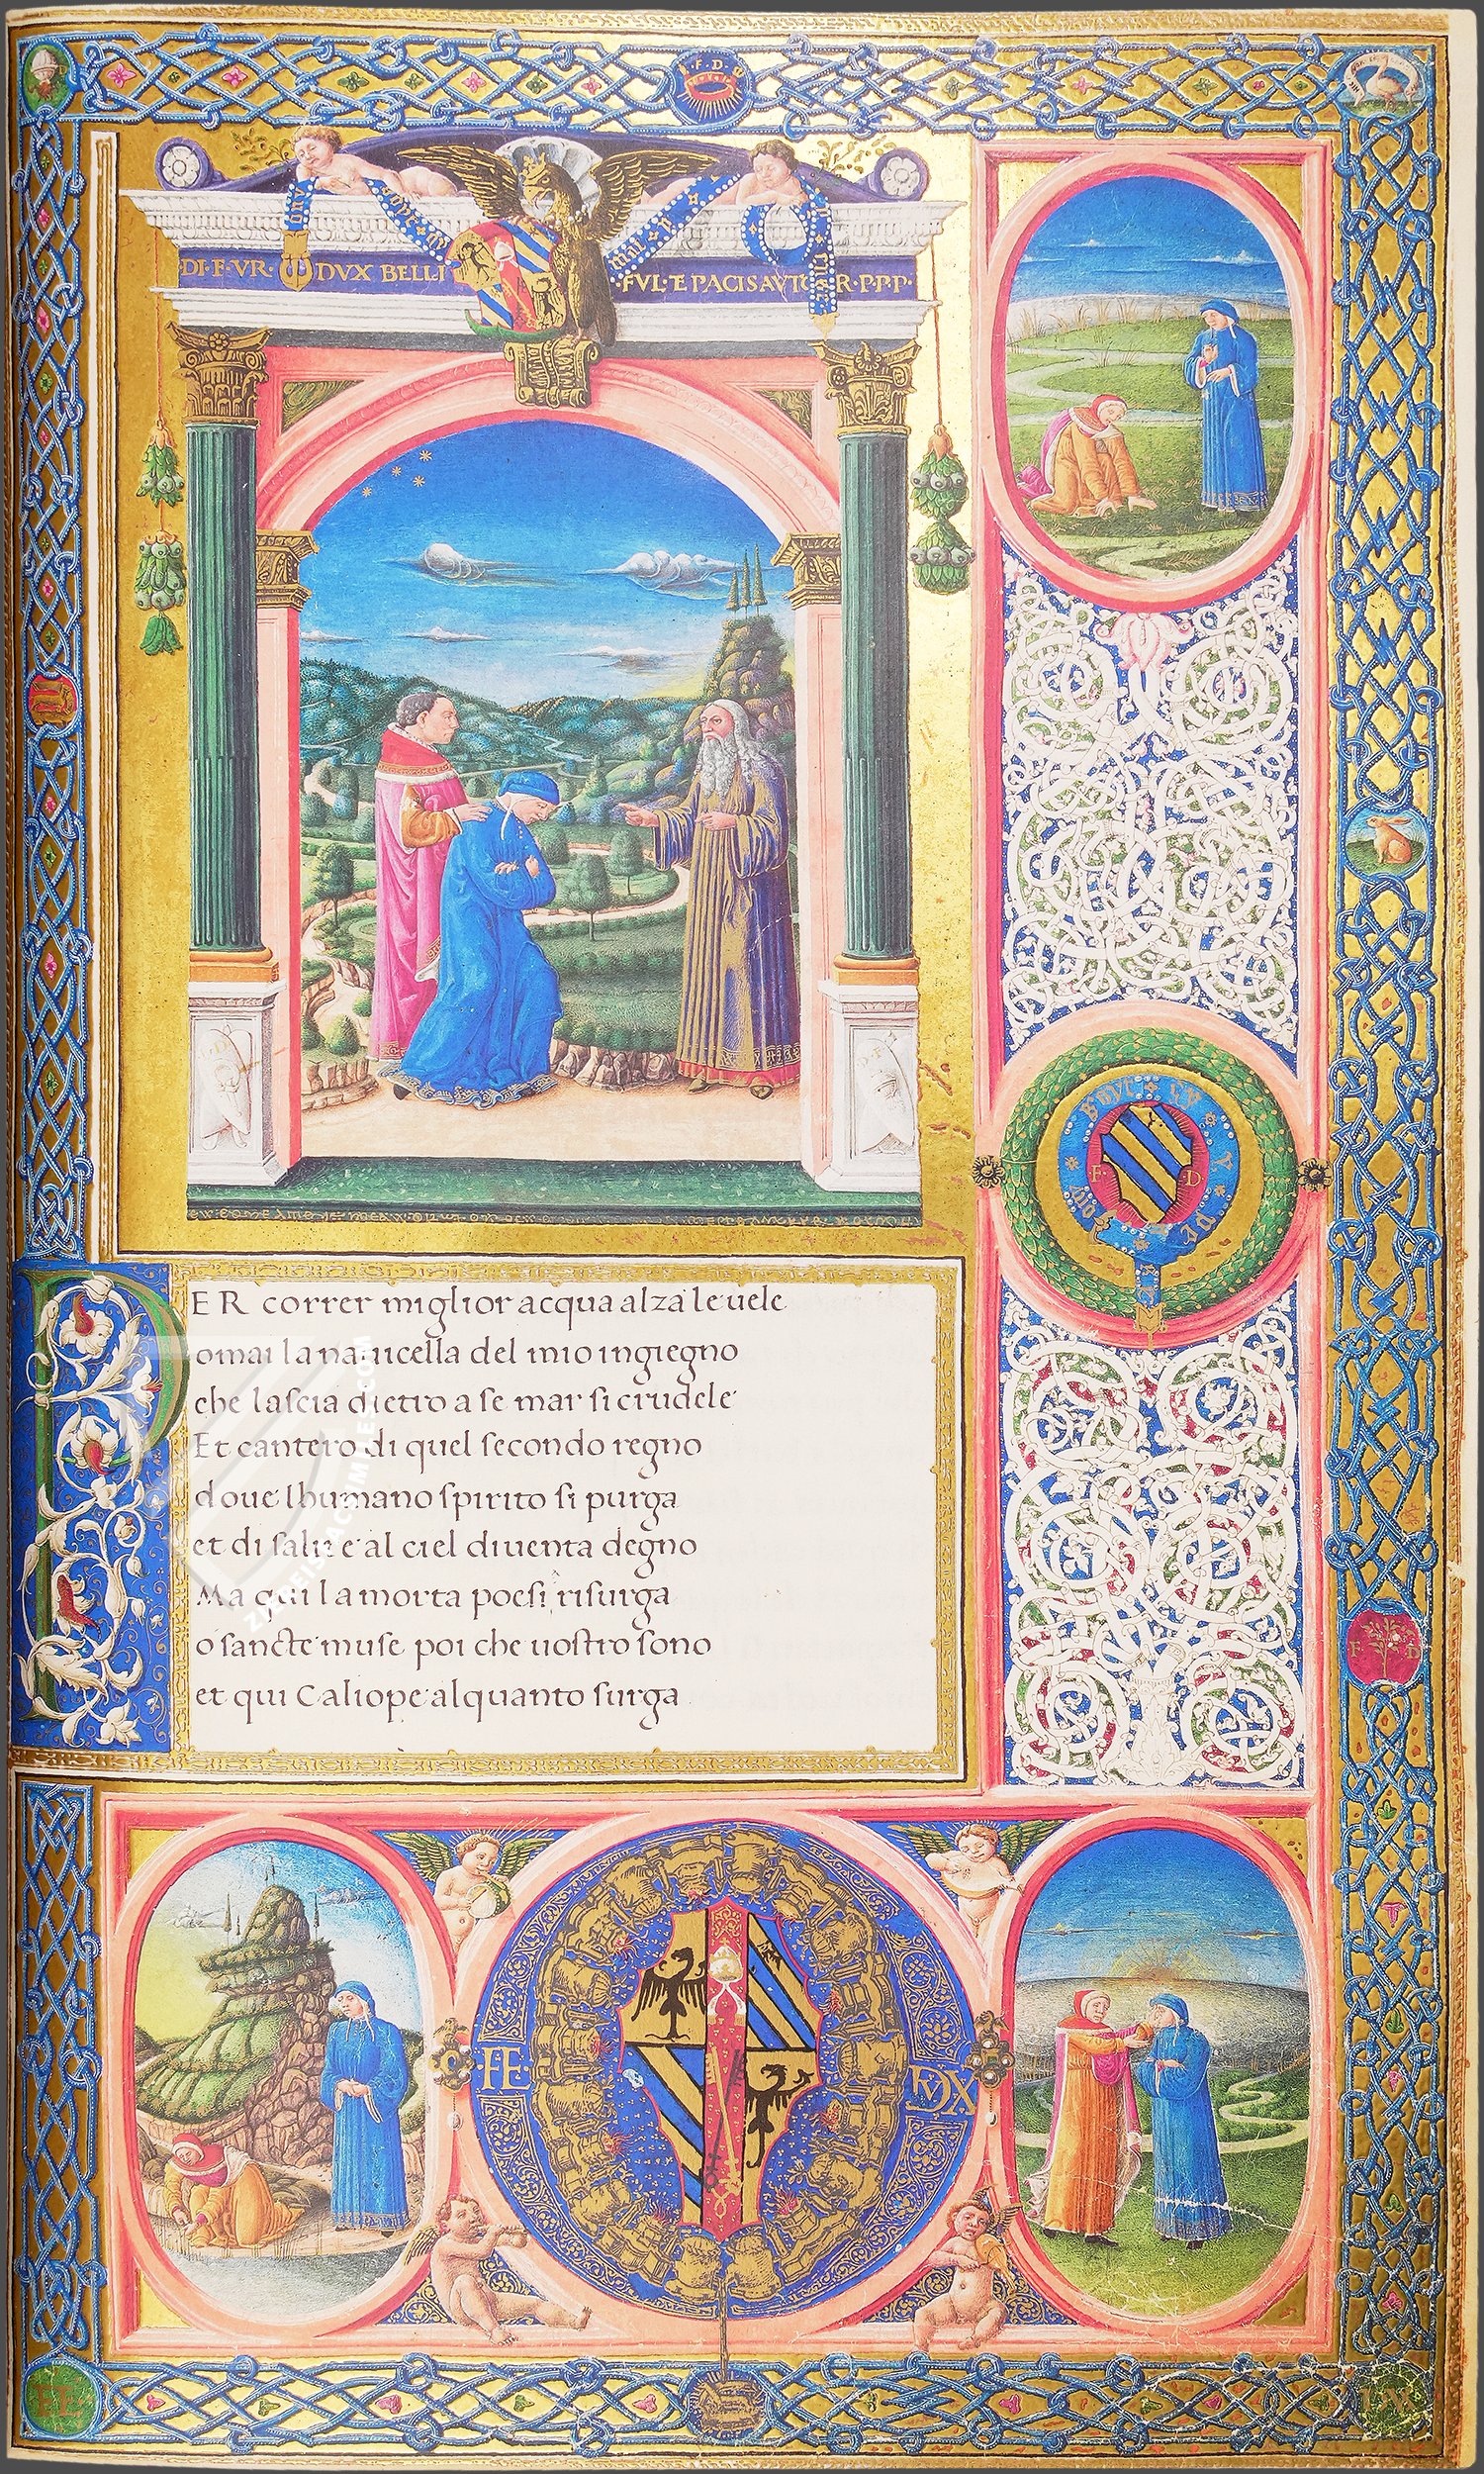 ·F·D·
DI·F·VR· DVX BELLI
FVL·E PACIS AVTOR·P·P·P·
ER correr miglior acqua alza le uele
omai la nauicella del mio ingiegno
che lascia dietro a se mar si crudele
Et cantero di quel secondo regno
doue lhumano spirito si purga
et di salire al ciel diuenta degno
Ma qui la morta poesi risurga
o sancte muse poi che uostro sono
et qui Caliope alquanto surga
F D
F D
·FE·
DVX
ZIEREIS FACSIMILES.COM